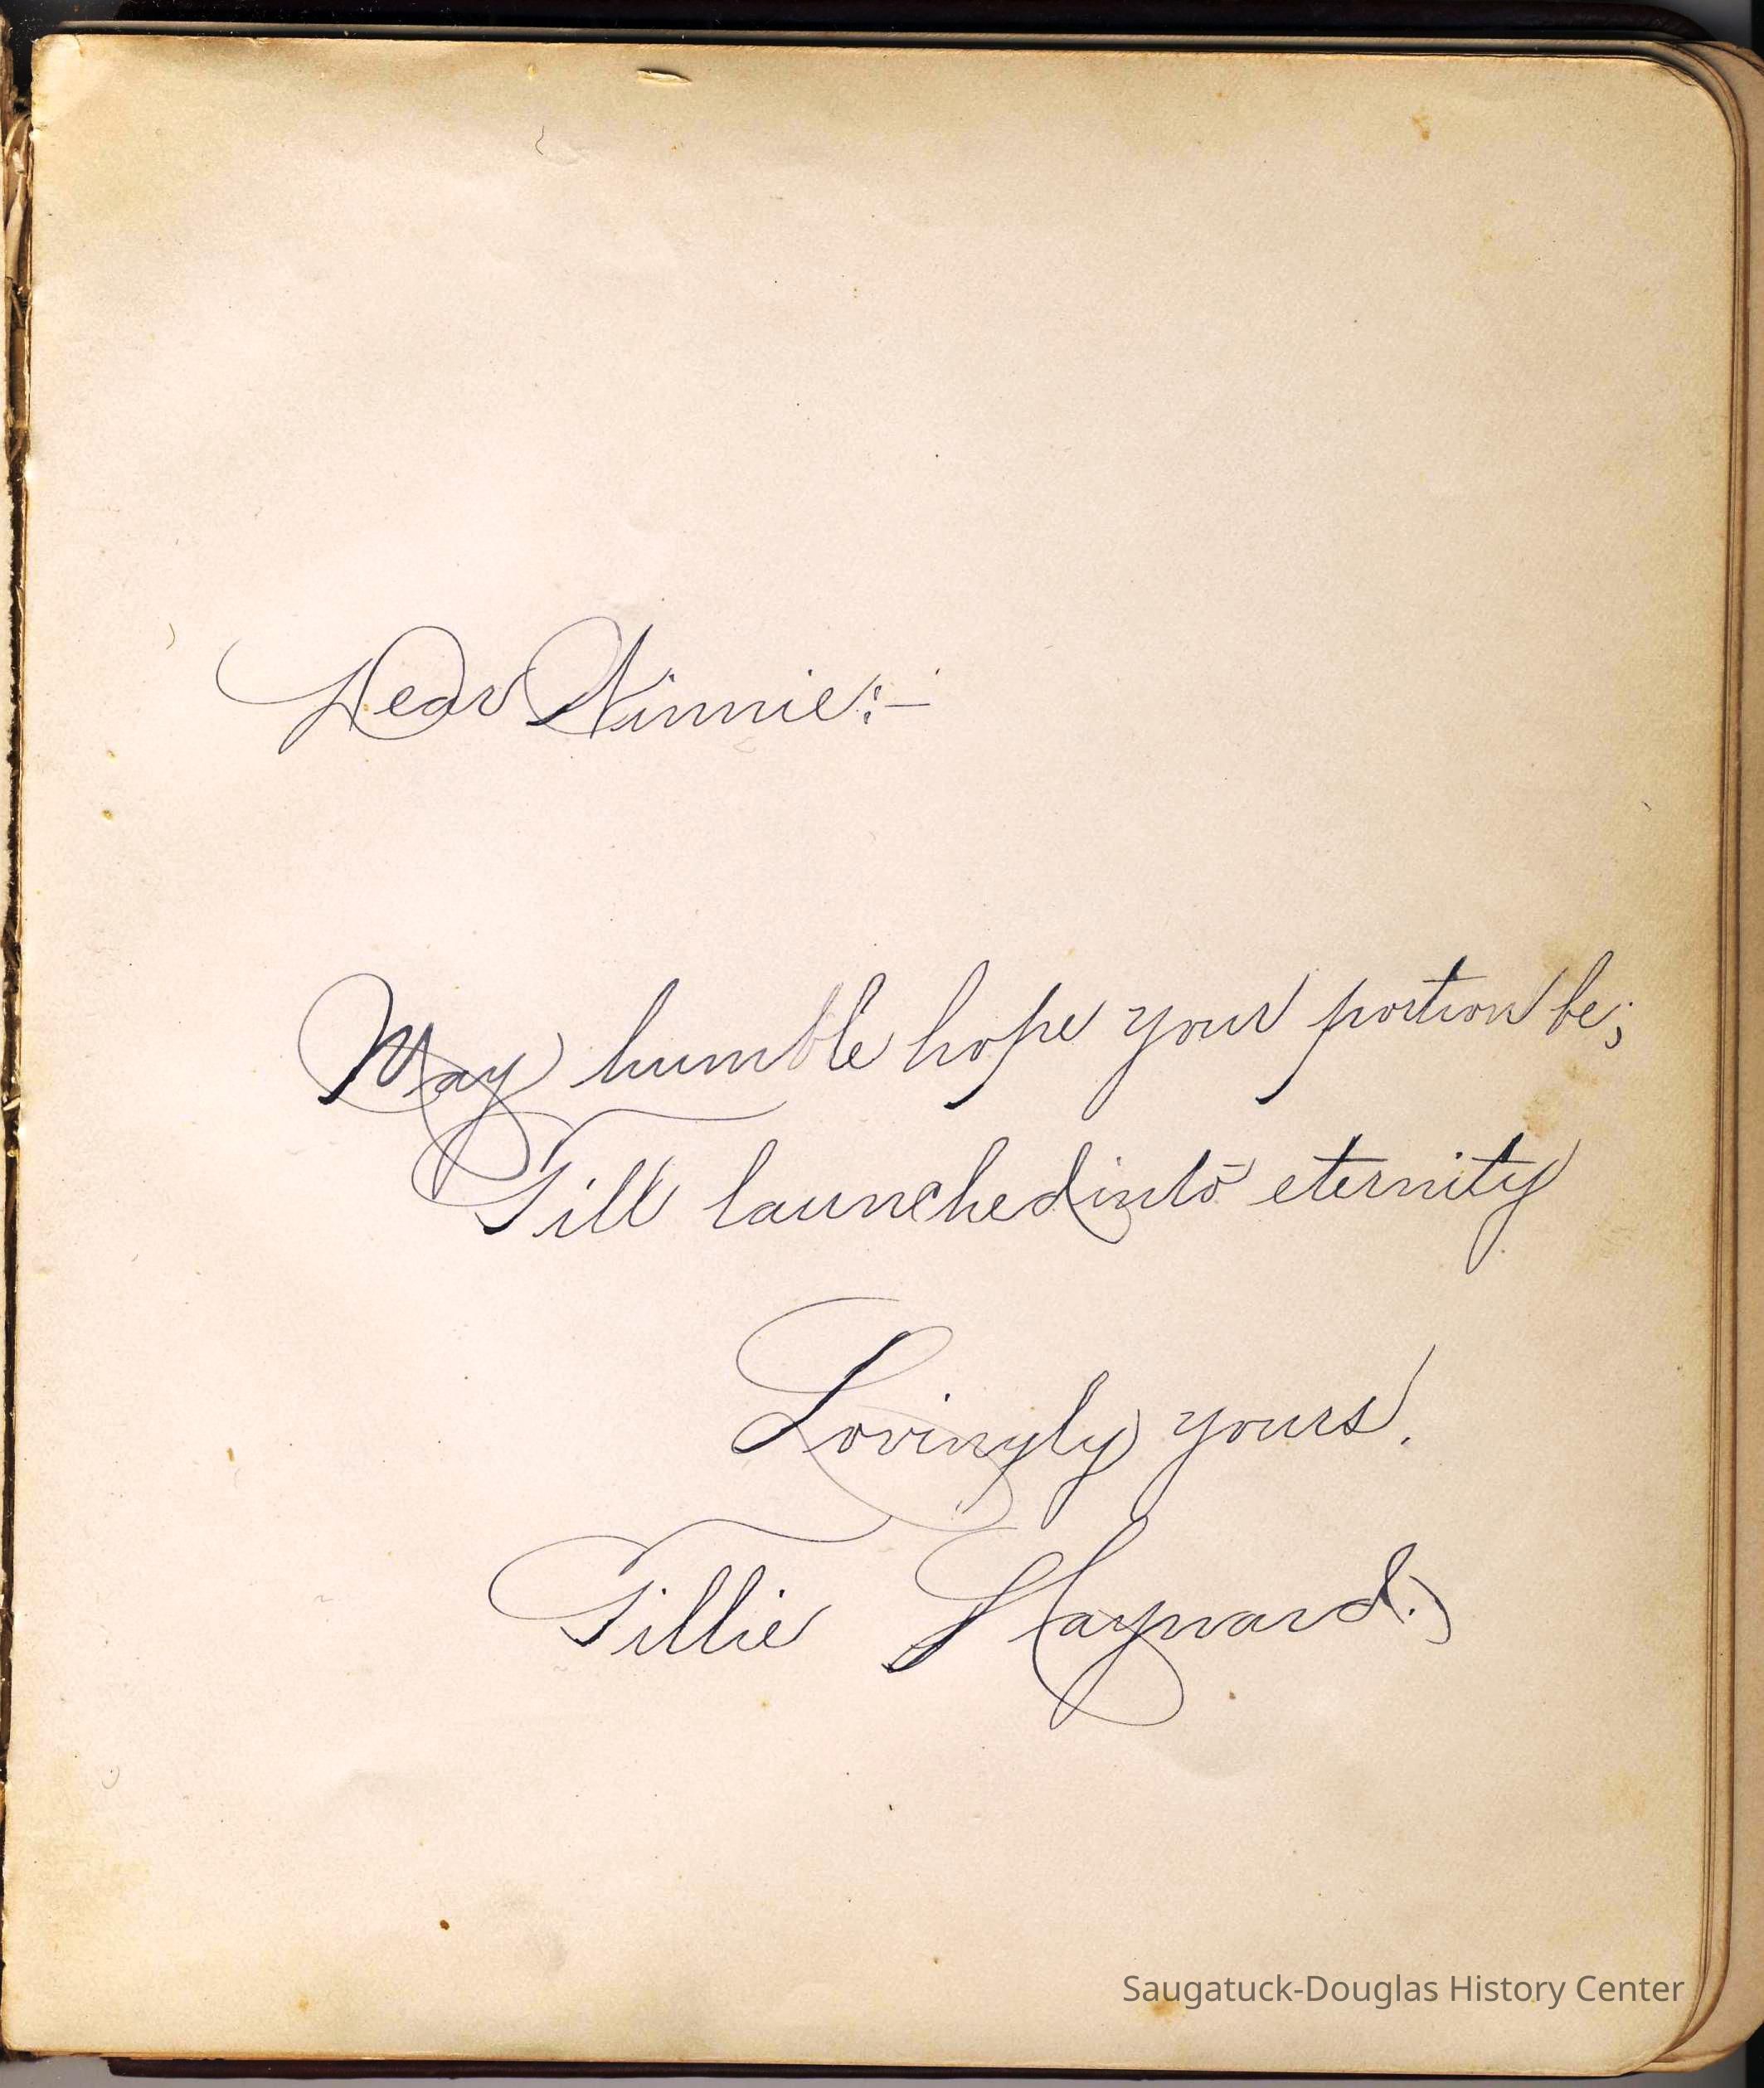 Dear Winnie:-
May humble hope your portion be;
Till launched into eternity
Lovingly yours.
Tillie Hayward.
Saugatuck-Douglas History Center